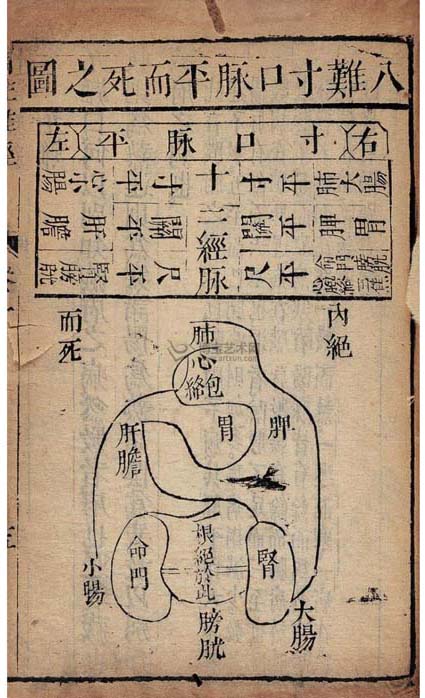 八難寸口脉平而死之圖
右寸口脉平左
大腸
肺
平
寸
胃
脾
平
關
三焦
命門
平
尺
十二經脉
寸
平
心
小腸
關
平
肝
膽
尺
平
腎
膀胱
內絕
而死
肺
心包絡
胃
脾
肝膽
命門
根絕於此
腎
小腸
大腸
膀胱